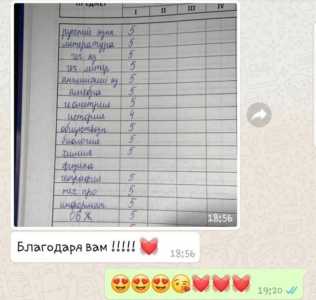 ПРЕДМЕТ I II III IV
русский язык 5
литература 5
чеч. яз 5
чеч. литер 5
английский яз 5
алгебра 5
геометрия 5
история 4
обществозн 5
биология 5
химия 5
физика
география 5
тех про 5
информат 5
ОБЖ 5
5
18:56
Благодаря вам !!!!! ❤️
18:56
😍😍😍😘❤️❤️❤️ 19:20